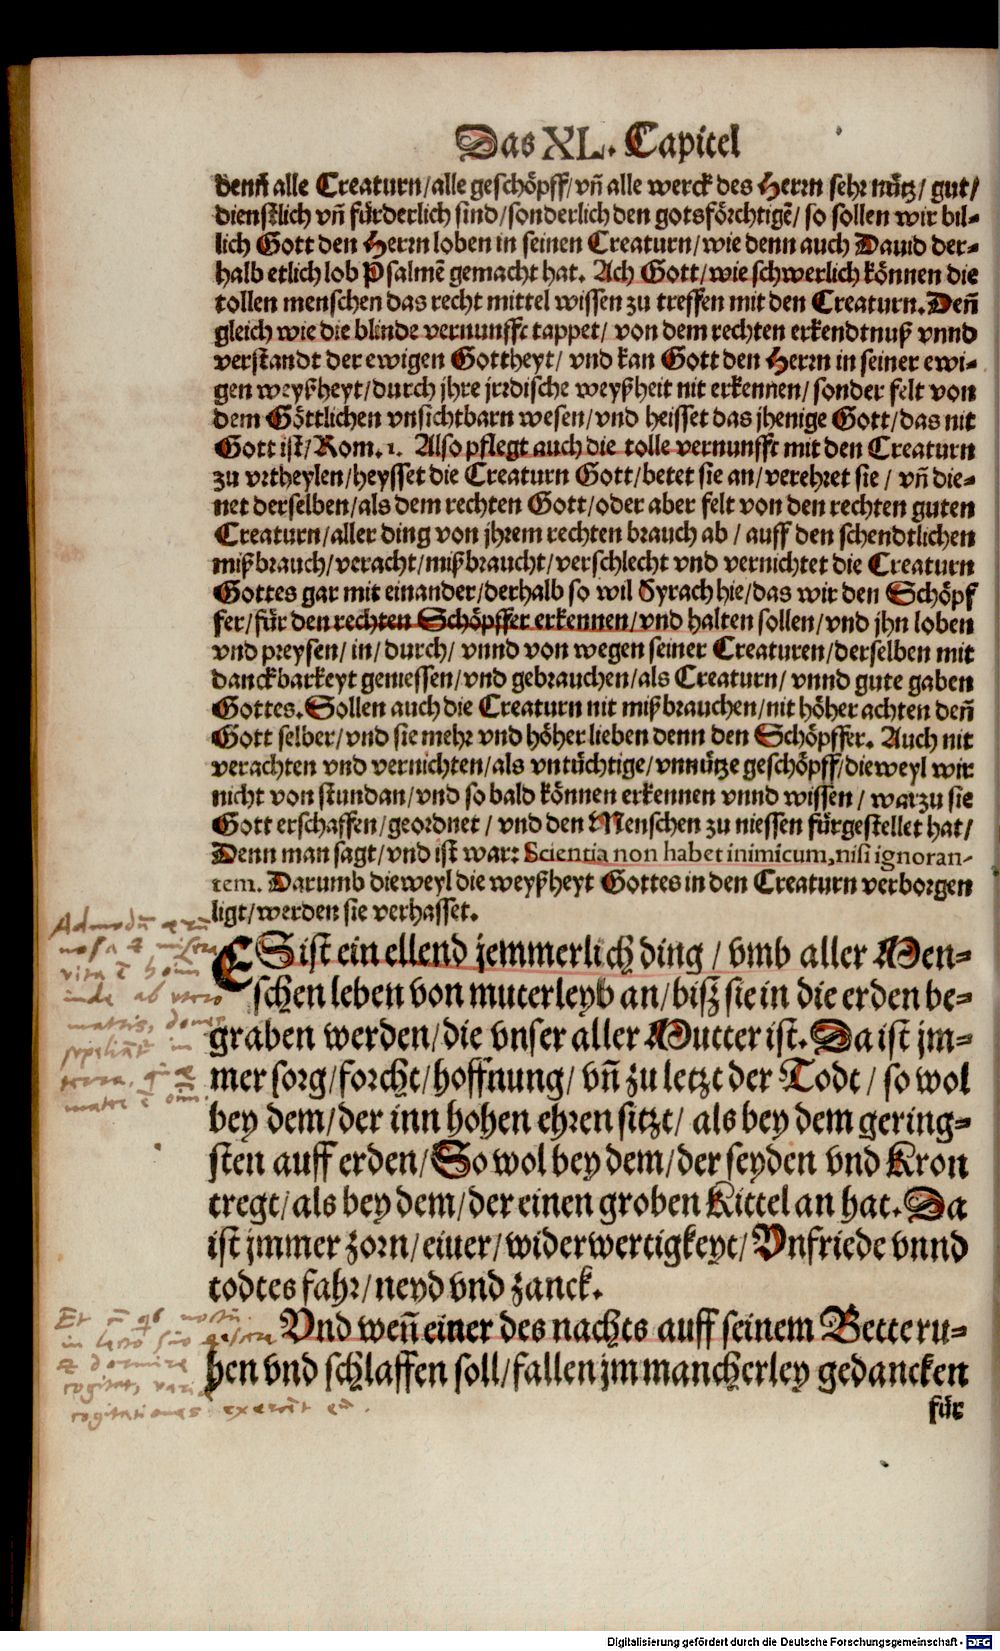 Das XL. Capitel
denñ alle Creaturn/alle geschöpff/vñ alle werck des Herrn sehr nütz/ gut/
dienstlich vñ fürderlich sind/sonderlich den gotsförchtigẽ/ so sollen wir bil-
lich Gott den Herrn loben in seinen Creaturn/wie denn auch Dauid der-
halb etlich lob Psalmẽ gemacht hat. Ach Gott/wie schwerlich können die
tollen menschen das recht mittel wissen zu treffen mit den Creaturn. Deñ
gleich wie die blinde vernunfft tappet/ von dem rechten erkendtnuß vnnd
verstandt der ewigen Gottheyt/ vnd kan Gott den Herrn in seiner ewi-
gen weyßheyt/durch jhre jrrdische weyßheit nit erkennen/ sonder felt von
dem Göttlichen vnsichtbarn wesen/vnd heisset das jhenige Gott/das nit
Gott ist/Rom. 1. Also pflegt auch die tolle vernunfft mit den Creaturn
zu vrtheylen/heysset die Creaturn Gott/betet sie an/verehret sie / vñ die-
net derselben/als dem rechten Gott/oder aber felt von den rechten guten
Creaturn/aller ding von jhrem rechten brauch ab / auff den schendtlichen
mißbrauch/veracht/mißbraucht/verschlecht vnd vernichtet die Creaturn
Gottes gar mit einander/derhalb so wil Syrach hie/das wir den Schöpf
fer/für den rechten Schöpffer erkennen/vnd halten sollen/vnd jhn loben
vnd preysen/ in/ durch/ vnnd von wegen seiner Creaturen/derselben mit
danckbarkeyt geniessen/vnd gebrauchen/als Creaturn/ vnnd gute gaben
Gottes. Sollen auch die Creaturn nit mißbrauchen/nit höher achten deñ
Gott selber/vnd sie mehr vnd höher lieben denn den Schöpffer. Auch nit
verachten vnd vernichten/als vntüchtige/vnnütze geschöpff/dieweyl wir
nicht von stundan/vnd so bald können erkennen vnnd wissen / warzu sie
Gott erschaffen/geordnet / vnd den Menschen zu niessen fürgestellet hat/
Denn man sagt/vnd ist war: Scientia non habet inimicum, nisi ignoran-
tem. Darumb dieweyl die weyßheyt Gottes in den Creaturn verborgen
ligt/werden sie verhasset.
ES ist ein ellend jemmerlich ding / vmb aller Men-
schen leben von muterleyb an/biß sie in die erden be-
graben werden/die vnser aller Mutter ist. Da ist jm-
mer sorg/forcht/hoffnung/ vñ zu letzt der Todt / so wol
bey dem/der inn hohen ehren sitzt/ als bey dem gering-
sten auff erden/So wol bey dem/der seyden vnd Kron
tregt/als bey dem/der einen groben Kittel an hat. Da
ist jmmer zorn/eiuer/widerwertigkeyt/Vnfriede vnnd
todtes fahr/neyd vnd zanck.
Vnd weñ einer des nachts auff seinem Bette ru-
hen vnd schlaffen soll/fallen jm mancherley gedancken
für
misera
vita ē
inde ab vtero
matris, donec
in
terra,
Et
in lecto suo
dormire
cogitationes
Digitalisierung gefördert durch die Deutsche Forschungsgemeinschaft - DFG